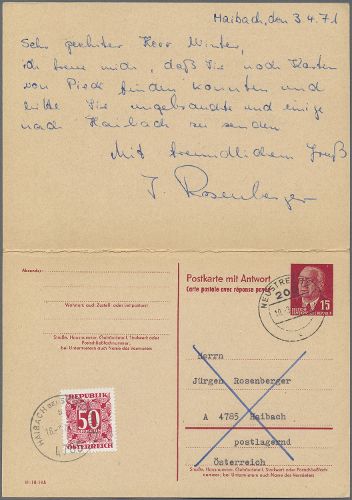 Haibach, den 3.4.71
Sehr geehrter Herr Winter,
ich freue mich, daß Sie noch Karten
von Pieck finden konnten und
bitte Sie ungebrauchte und einige
nach Haibach zu senden
Mit freundlichem Gruß
J. Rosenberger
Absender:
Wohnort und Zustell- oder Leitpostamt
Straße, Hausnummer, Gebäudeteil, Stockwerk oder
Postschließfachnummer;
bei Untermietern auch Name des Vermieters
Postkarte mit Antwort
Carte postale avec réponse payée
15
NEUSTRE
20
HAIBACH
REPUBLIK
50
ÖSTERREICH
Herrn
Jürgen Rosenberger
A 4785 Haibach
postlagernd
Österreich
Straße, Hausnummer, Gebäudeteil, Stockwerk oder Postschließfachnummer;
bei Untermietern auch Name des Vermieters
III-18-185